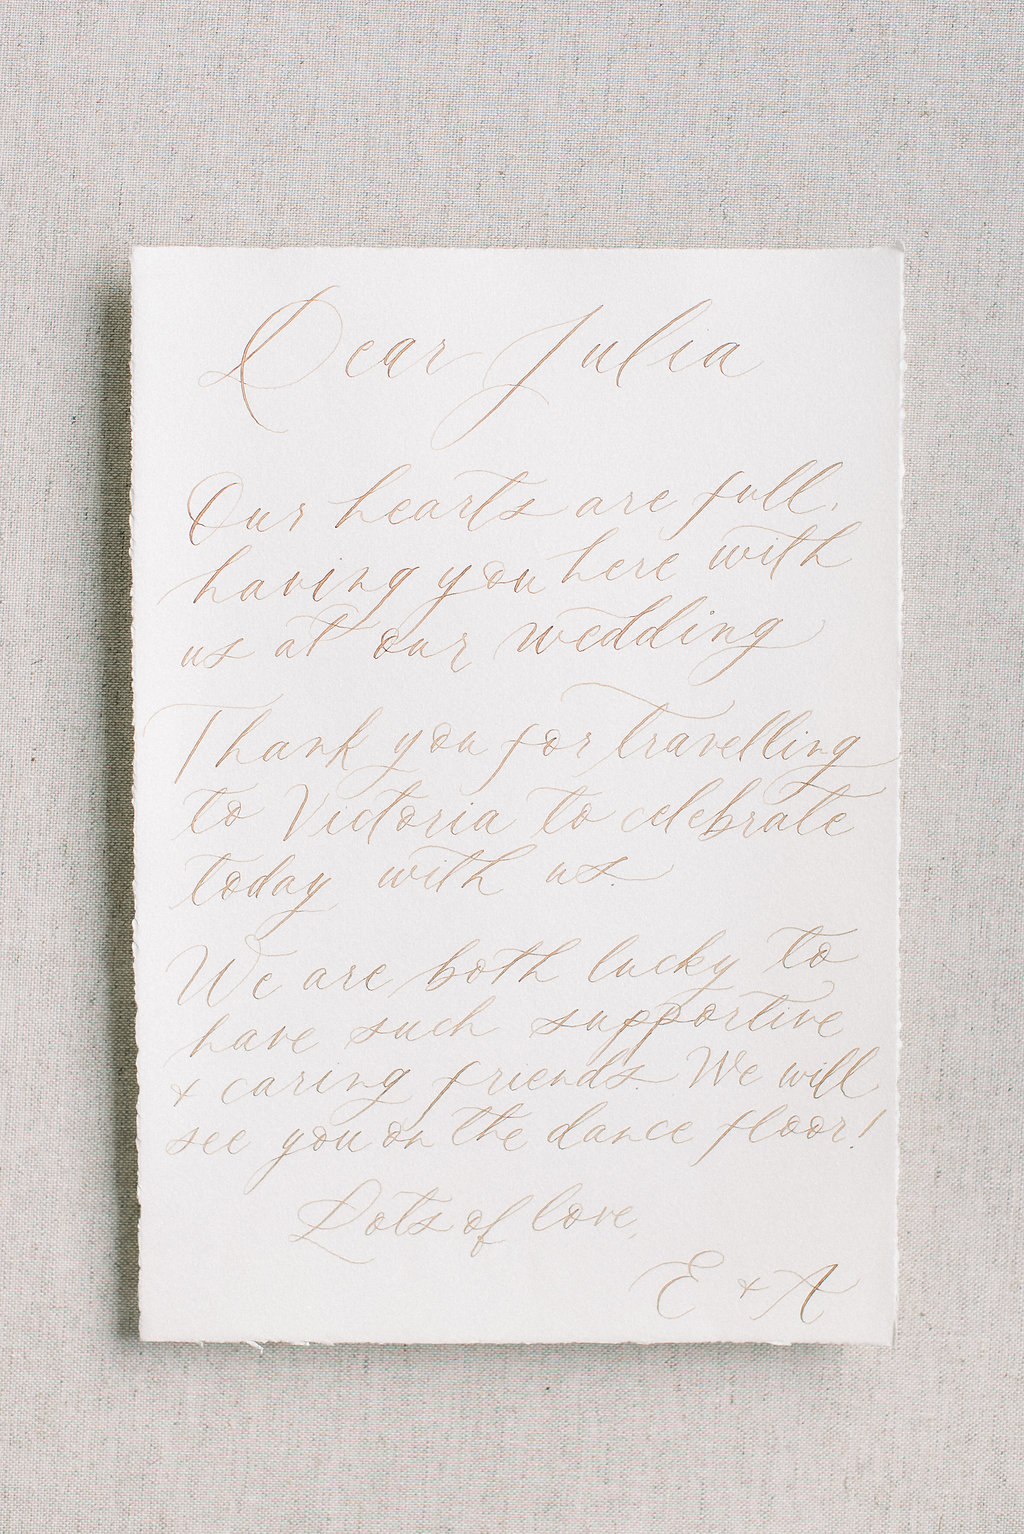 Dear Julia
Our hearts are full,
having you here with
us at our wedding
Thank you for travelling
to Victoria to celebrate
today with us.
We are both lucky to
have such supportive
+ caring friends. We will
see you on the dance floor!
Lots of love,
E + A